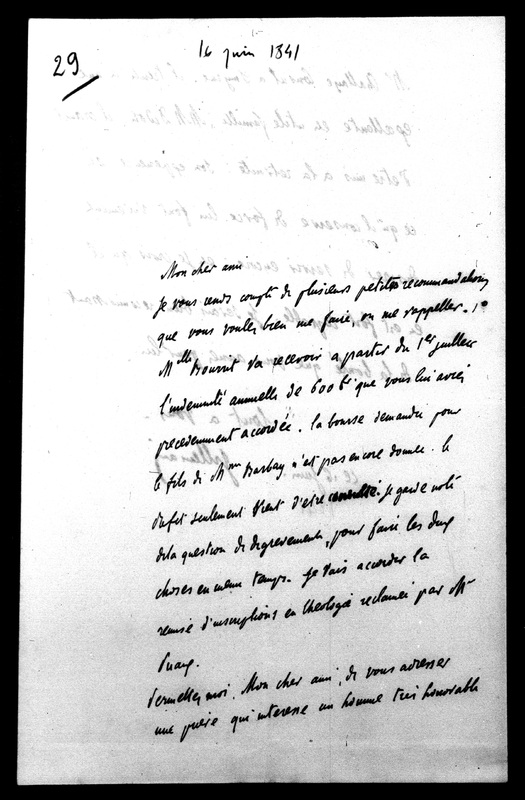 29
16 juin 1841
Mon cher ami
je vous rends compte de plusieurs petites recommandations
que vous voulez bien me faire, ou me rappeler. 1°
Mlle Bourrit va recevoir a partir du 1er juillet
l'indemnité annuelle de 600 f que vous lui aviez
precedemment accordée. la bourse demandée pour
le fils de Mme Barbay n'est pas encore donnée. le
Prefet seulement vient d'etre consulté. je garde note
de la question de degrevement, pour faire les deux
choses en meme temps. je vais accorder la
remise d'inscriptions en theologie reclamée par Mr
Permettez moi, Mon cher ami, de vous adresser
une priere qui interesse un homme tres honorable